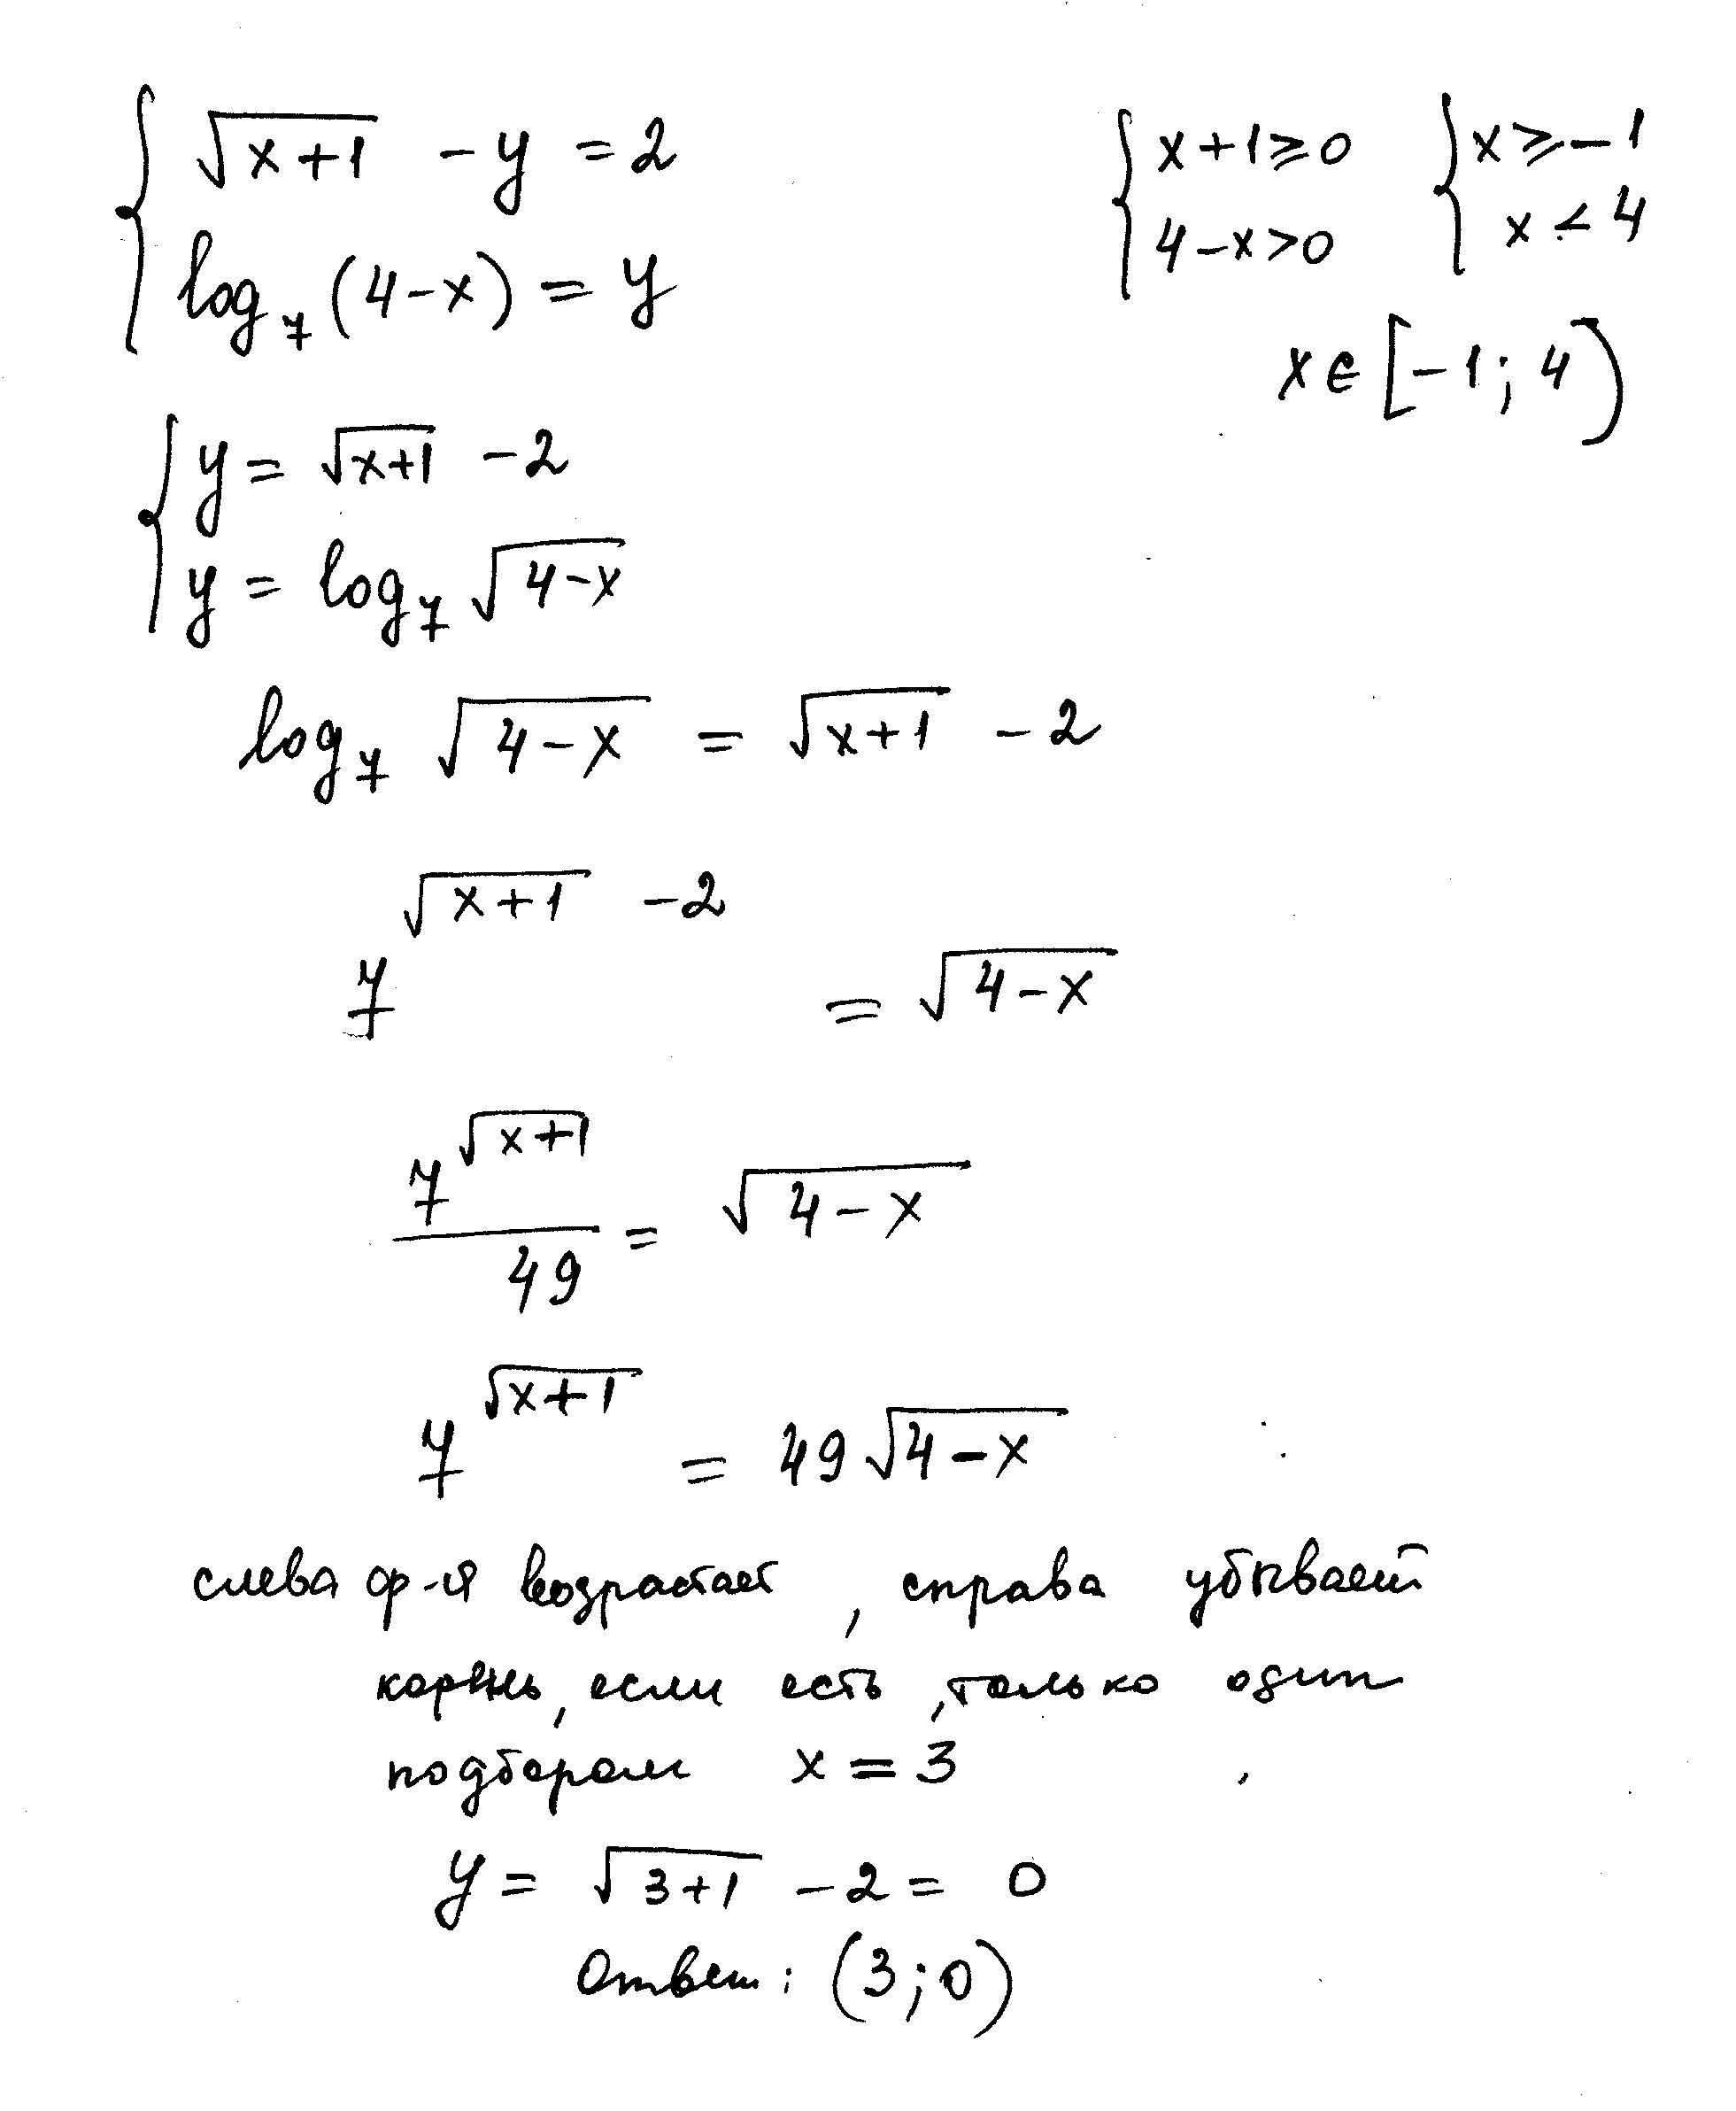 { √(x+1) - y = 2
log₇(4-x) = y
{ x+1⩾0
4-x>0
{ x⩾-1
x<4
x∈[-1; 4)
{ y = √(x+1) - 2
y = log₇ √(4-x)
log₇ √(4-x) = √(x+1) - 2
7^(√(x+1) - 2) = √(4-x)
7^(√(x+1)) / 49 = √(4-x)
7^(√(x+1)) = 49√(4-x)
слева ф-я возрастает, справа убывает
корень, если есть, только один
подбором x = 3
y = √(3+1) - 2 = 0
Ответ: (3; 0)